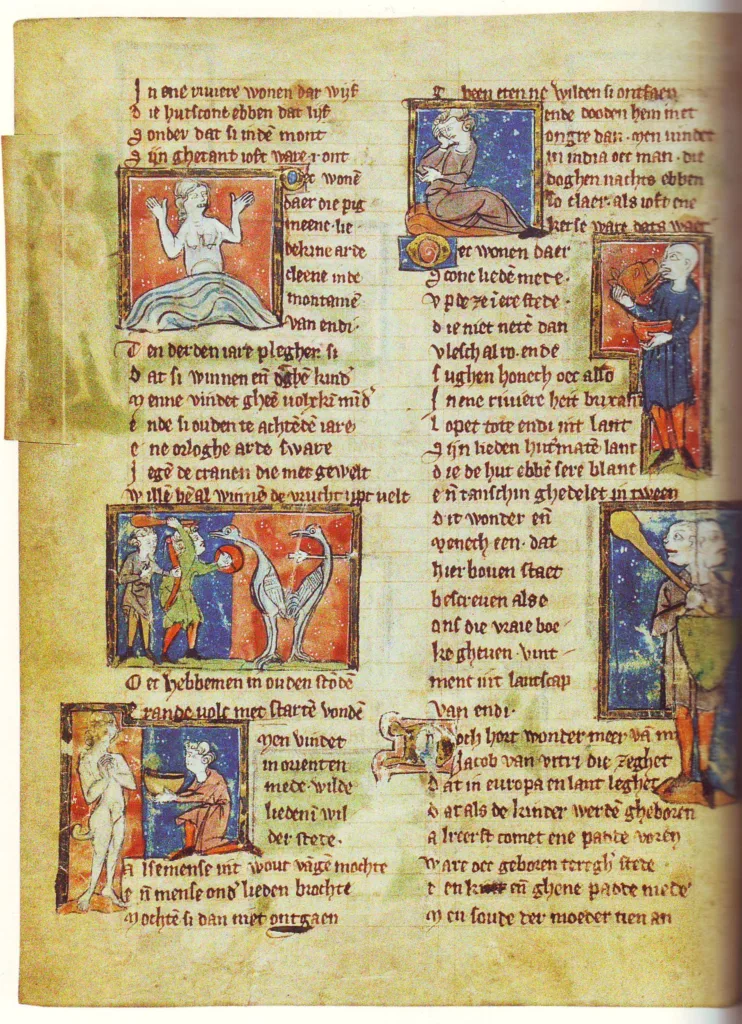 In ene riviere wonen dat wijf
Die hutscone ebben dat lijf
Sonder dat si indē mont
Sijn ghetant oft ware .i. ont
Oec wonē
daer die pig
meene lie
dekine arde
cleene inde
montainē
van endi.
Ten derden iare pleghen si
Dat si winnen eñ kind
Menne vindet gheē volx min
Ende si ouden te achtēdē iare
Ene orloghe arde sware
Iegē de cranen die met gewelt
Willē winnē de vrucht upt velt
Oec hebbemen in ouden stōdē
Erande volc met startē vondē
Men vindet
in orienten
mede wilde
liedeni wil
der stede.
Alsemense int wout vāgē mochte
Eñ mense ond lieden brochte
Mochtē si dan niet ontgaen
Ten eten ne wilden si ontfaen
ende dooden hem met
ongre dan. Men vindet
in india oec man. die
doghen nachts ebben
so claer. als ioft ene
kerse ware data waer
Oec wonen daer
Scone liedē mete.
Up de zeiere stede.
Die niet netē dan
Vlesch al ro. ende
Sughen honech oec also
In ene riviere heit
Lopet tote endi int lant
Sijn lieden hutmatē lanc
Die de hut ebbē sere blanc
Eñ tanschin ghedelet in tween
Dit wonder eñ
Menech een. dat
hier boven staet
bescreven also
ons die vraie boe
ke gheven. vint
ment int lantscap
van endi.
Noch hort wonder meer vā mi
Jacob van vitri die zeghet
Dat in europa en lant leghet
Dat als de kinder werdē gheboren
Alreerst comet ene padde voren
Ware oec geboren teregh stede
Een eñ ghene padde mede
Men soude der moeder tien an